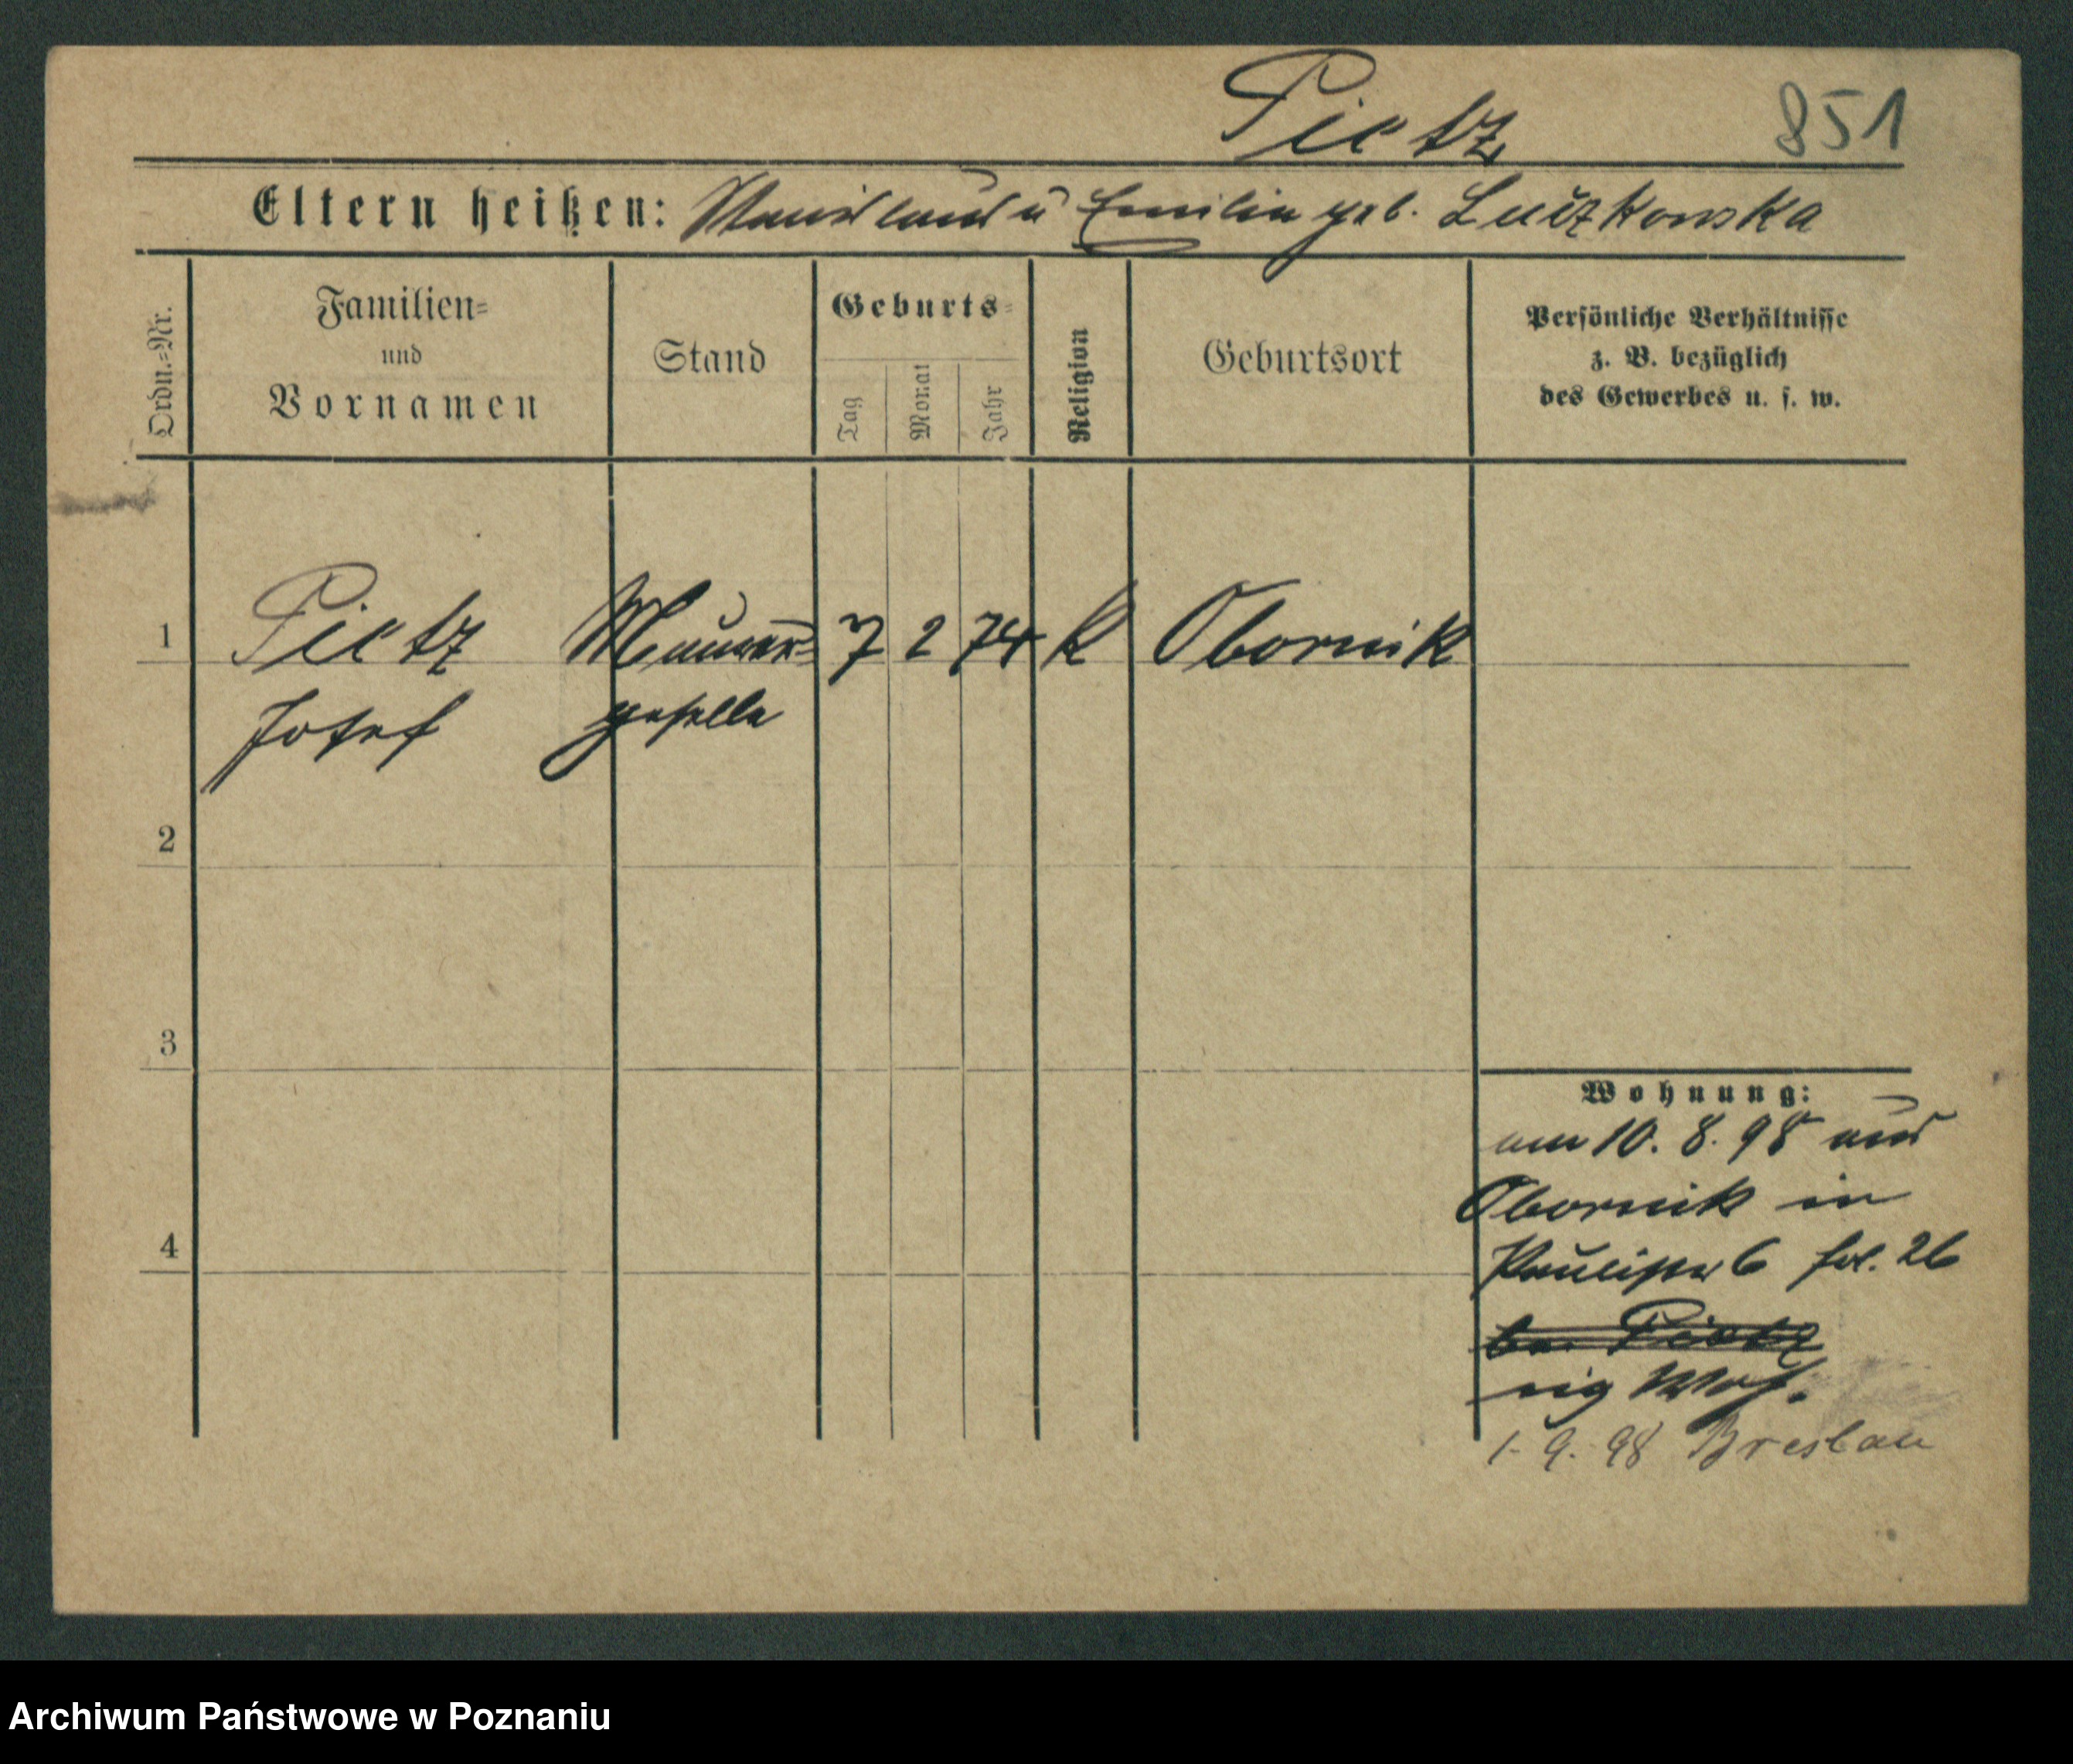 Pietz 851
Eltern heißen: Stanislaus u Emilia geb. Luczkowska
Ordn.-Nr.
Familien-
und
Vornamen
Stand
Geburts-
Tag
Monat
Jahr
Religion
Geburtsort
Persönliche Verhältnisse
z. B. bezüglich
des Gewerbes u. s. w.
1 Pietz Maurer- 7 2 74 K Obornik
Josef geselle
2
3
4
Wohnung:
am 10. 8. 98 aus
Obornik in
6 fol. 26
bei Pietz
1. 9. 98 Breslau
Archiwum Państwowe w Poznaniu